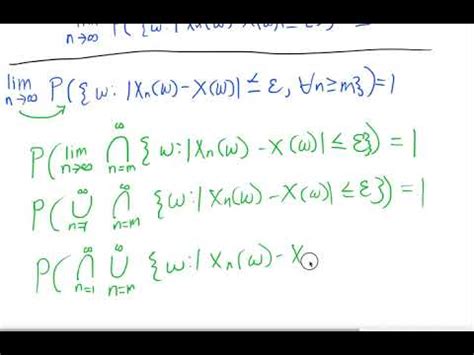 lim n→∞ P({ω: |Xn(ω)-X(ω)| ≤ ε, ∀n≥m})=1
P(lim n→∞ ∞ ⋂ n=m {ω:|Xn(ω) - X(ω)| ≤ ε})=1
P(∞ ⋃ n=1 ∞ ⋂ n=m {ω:|Xn(ω) - X(ω)| ≤ ε})=1
P(∞ ⋂ n=1 ∞ ⋃ n=m {ω:| Xn(ω) - X